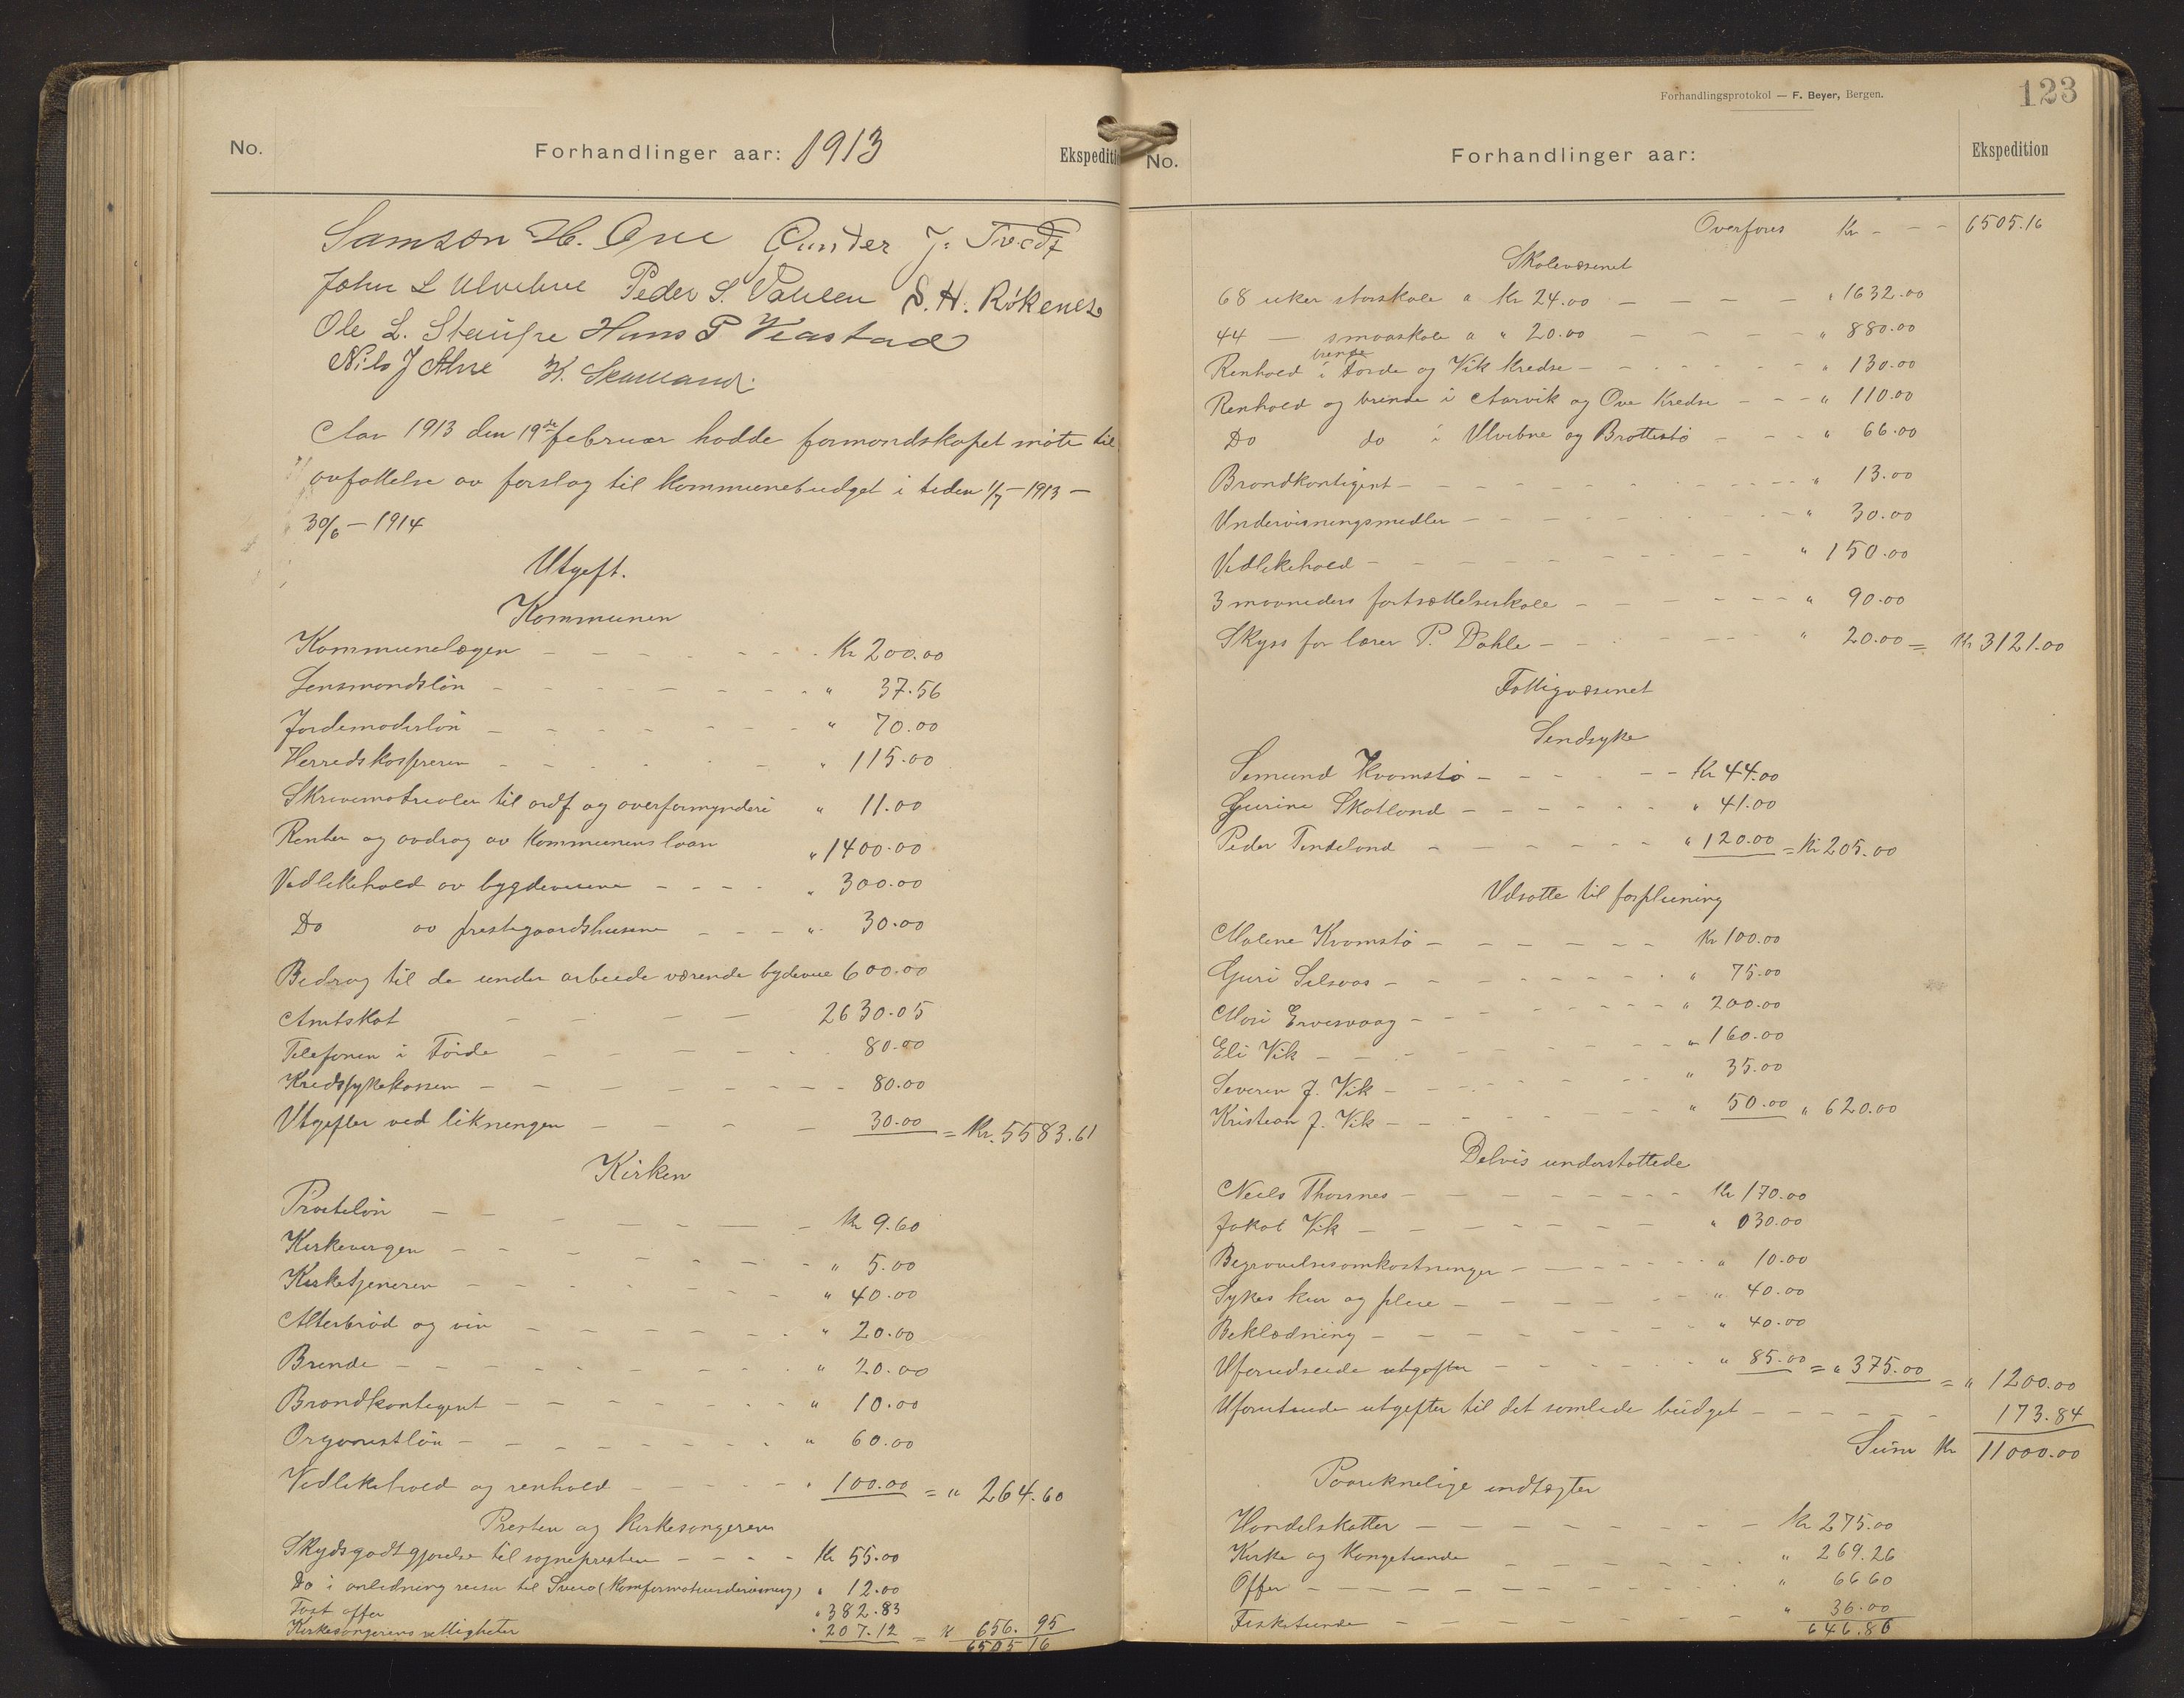 No.
Forhandlinger aar: 1913
Ekspedit
Samson H. Ove Gunder J. Tvedt
John L Ulvebne Peder S. S. H. Røkenes
Ole L. Staupe Hans P
Nils J Alne K.
Aar 1913 den 19de februar hadde formandskapet møte til
avfattelse av forslag til kommunebudget i tiden 1/7 – 1913 –
30/6 – 1914
Utgeft.
Kommunen
Kommunelægen Kr 200.00
Lensmandsløn " 37.56
Jordemoderløn " 70.00
Herredskasseren " 115.00
Skrivematrealer til ordf og overformynderi " 11.00
Renter og avdrag av kommunens laan " 1400.00
Vedlikehold av bygdeveiene " 300.00
Do av prestegaardshusene " 30.00
Bedrag til de under arbeide værende bydeveie 600.00
Amtskat 2630.05
Telefonen i Førde 80.00
Kredssykekassen 80.00
Utgifter ved likningen 30.00 = Kr. 5583.61
Kirken
Prosteløn Kr 9.60
Kirkevergen " 5.00
Kirketjeneren " 40.00
Alterbrød og vin " 20.00
Brende " 20.00
Brandkontigent " 10.00
Organistløn " 60.00
Vedlikehold og renhold " 100.00 = " 264.60
Presten og kirkesangeren
Skydsgodtgjørelse til sognepresten Kr 55.00
Do i anledning reiser til Sveio (Komfermationsundervisning) " 12.00
Fast offer " 382.83
Kirkesangerens rettigheter " 207.12 = K 656.95
6505 16
Forhandlingsprotokol — F. Beyer, Bergen.
123
No.
Forhandlinger aar:
Ekspedition
Overføres Kr 6505.16
Skolevæsenet
68 uker storskole a Kr 24.00 " 1632.00
44 — smaaskole a " 20.00 " 880.00
brende
Renhold i Førde og Vik Kredse " 130.00
Renhold og brende i Aarvik og Ove Kredse " 110.00
Do do i Ulvebne og Brattestø " 66.00
Brandkontigent " 13.00
Undervisningsmedler " 30.00
Vedlikehold " 150.00
3 maaneders fortsættelseskole " 90.00
Skyss for lærer P. Dahle " 20.00 = Kr 3121.00
Fattigvæsenet
Sendsyke
Semund Kvamstø Kr 44.00
Gurine Skotland " 41.00
Peder Tindeland " 120.00 = Kr 205.00
Udsatte til forpleining
Malene Kvamstø Kr 100.00
Guri Selsaas " 75.00
Mari Ervesvaag " 200.00
Eli Vik " 160.00
Severin J. Vik " 35.00
Kristian J. Vik " 50.00 " 620.00
Delvis understøttede
Neels Thorsnes Kr 170.00
Jakob Vik " 030.00
Begravelsesomkostninger " 10.00
Sykes kur og pleie " 40.00
Beklædning " 40.00
Uforudseede utgefter " 85.00 = " 375.00 = " 1200.00
Uforutseede utgefter til det samlede budget 173.84
Sum Kr 11000.00
Paareknelige indtægter
Handelskatter Kr 275.00
Kirke og kongetiende " 269.26
Offer " 66 60
Fisketiende " 36.00
646.86